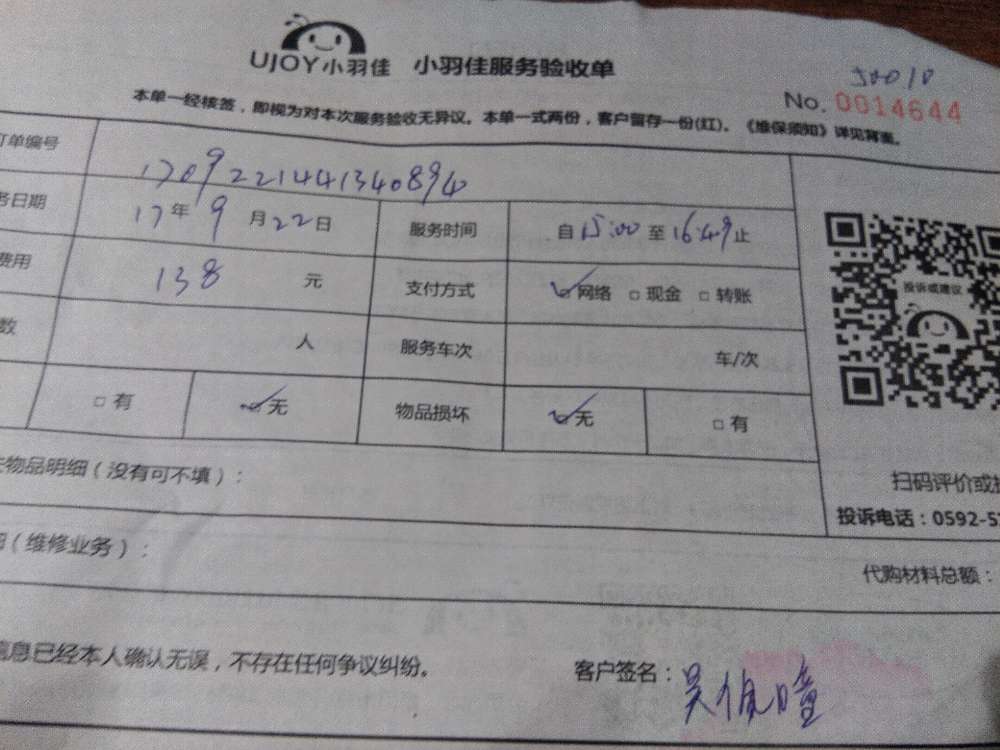 UJOY小羽佳 小羽佳服务验收单
50010
No. 0014644
本单一经核签，即视为对本次服务验收无异议。本单一式两份，客户留存一份(红)。《维保须知》详见背面。
订单编号 170922144134089
务日期 17年9月22日 服务时间 自15:00至16:49止
费用 138 元 支付方式 ✓网络 □现金 □转账
数 人 服务车次 车/次
□有 ✓无 物品损坏 ✓无 □有
投诉或建议
物品明细（没有可不填）：
扫码评价或
投诉电话：0592-5
（维修业务）：
代购材料总额：
信息已经本人确认无误，不存在任何争议纠纷。
客户签名：吴